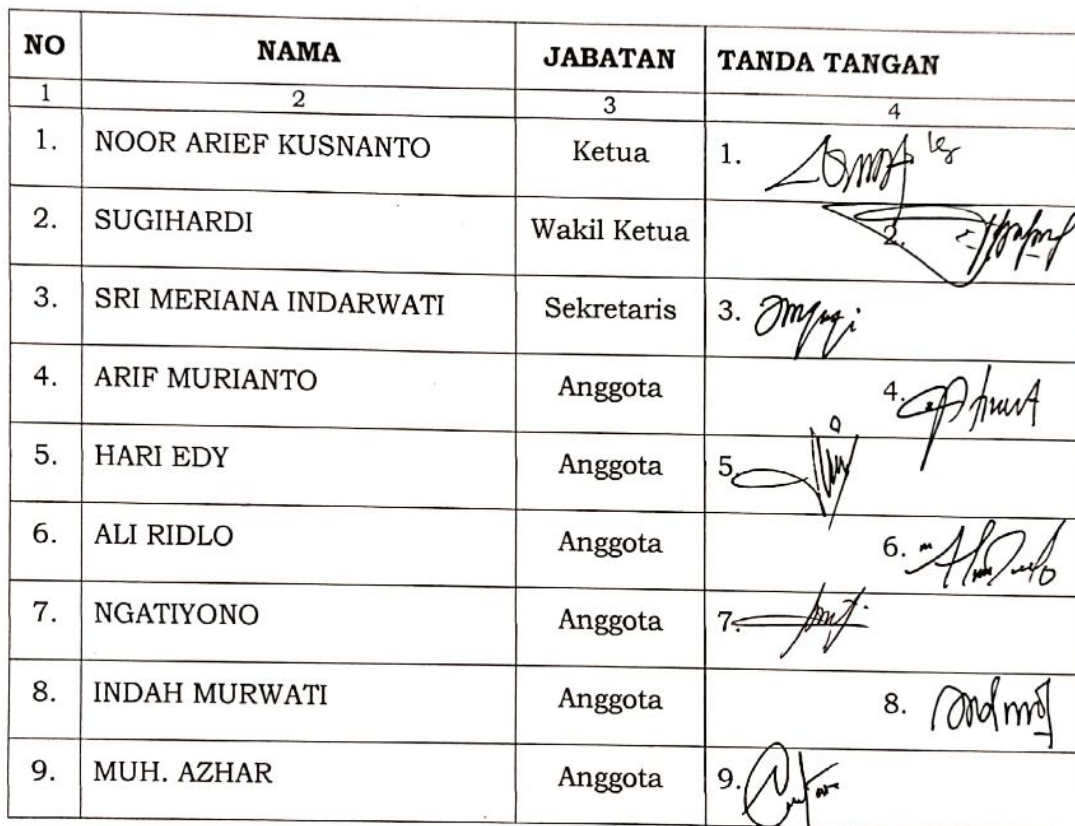 NO NAMA JABATAN TANDA TANGAN
1 2 3 4
1. NOOR ARIEF KUSNANTO Ketua 1.
2. SUGIHARDI Wakil Ketua 2.
3. SRI MERIANA INDARWATI Sekretaris 3.
4. ARIF MURIANTO Anggota 4.
5. HARI EDY Anggota 5.
6. ALI RIDLO Anggota 6.
7. NGATIYONO Anggota 7.
8. INDAH MURWATI Anggota 8.
9. MUH. AZHAR Anggota 9.